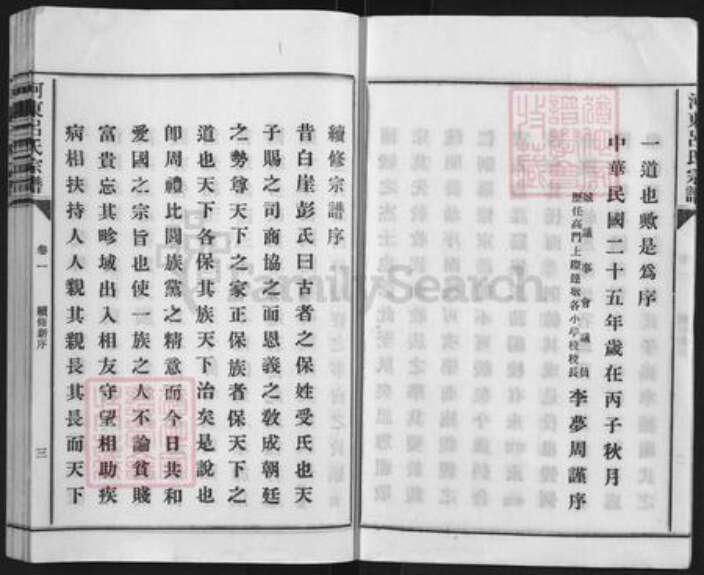 河東呂氏宗譜
一道也歟是爲序
中華民國二十五年歲在丙子秋月
縣議事會議員
歷任高門上 各小學校校長
李夢周謹序
續修宗譜序
昔白崖彭氏曰古者之保姓受氏也天
子賜之司商協之而恩義之敎成朝廷
之勢尊天下之家正保族者保天下之
道也天下各保其族天下治矣是說也
卽周禮比閭族黨之精意而今日共和
愛國之宗旨也使一族之人不論貧賤
富貴忘其畛域出入相友守望相助疾
病相扶持人人親其親長其長而天下
河東呂氏宗譜
卷一
續修新序
三
FamilySearch